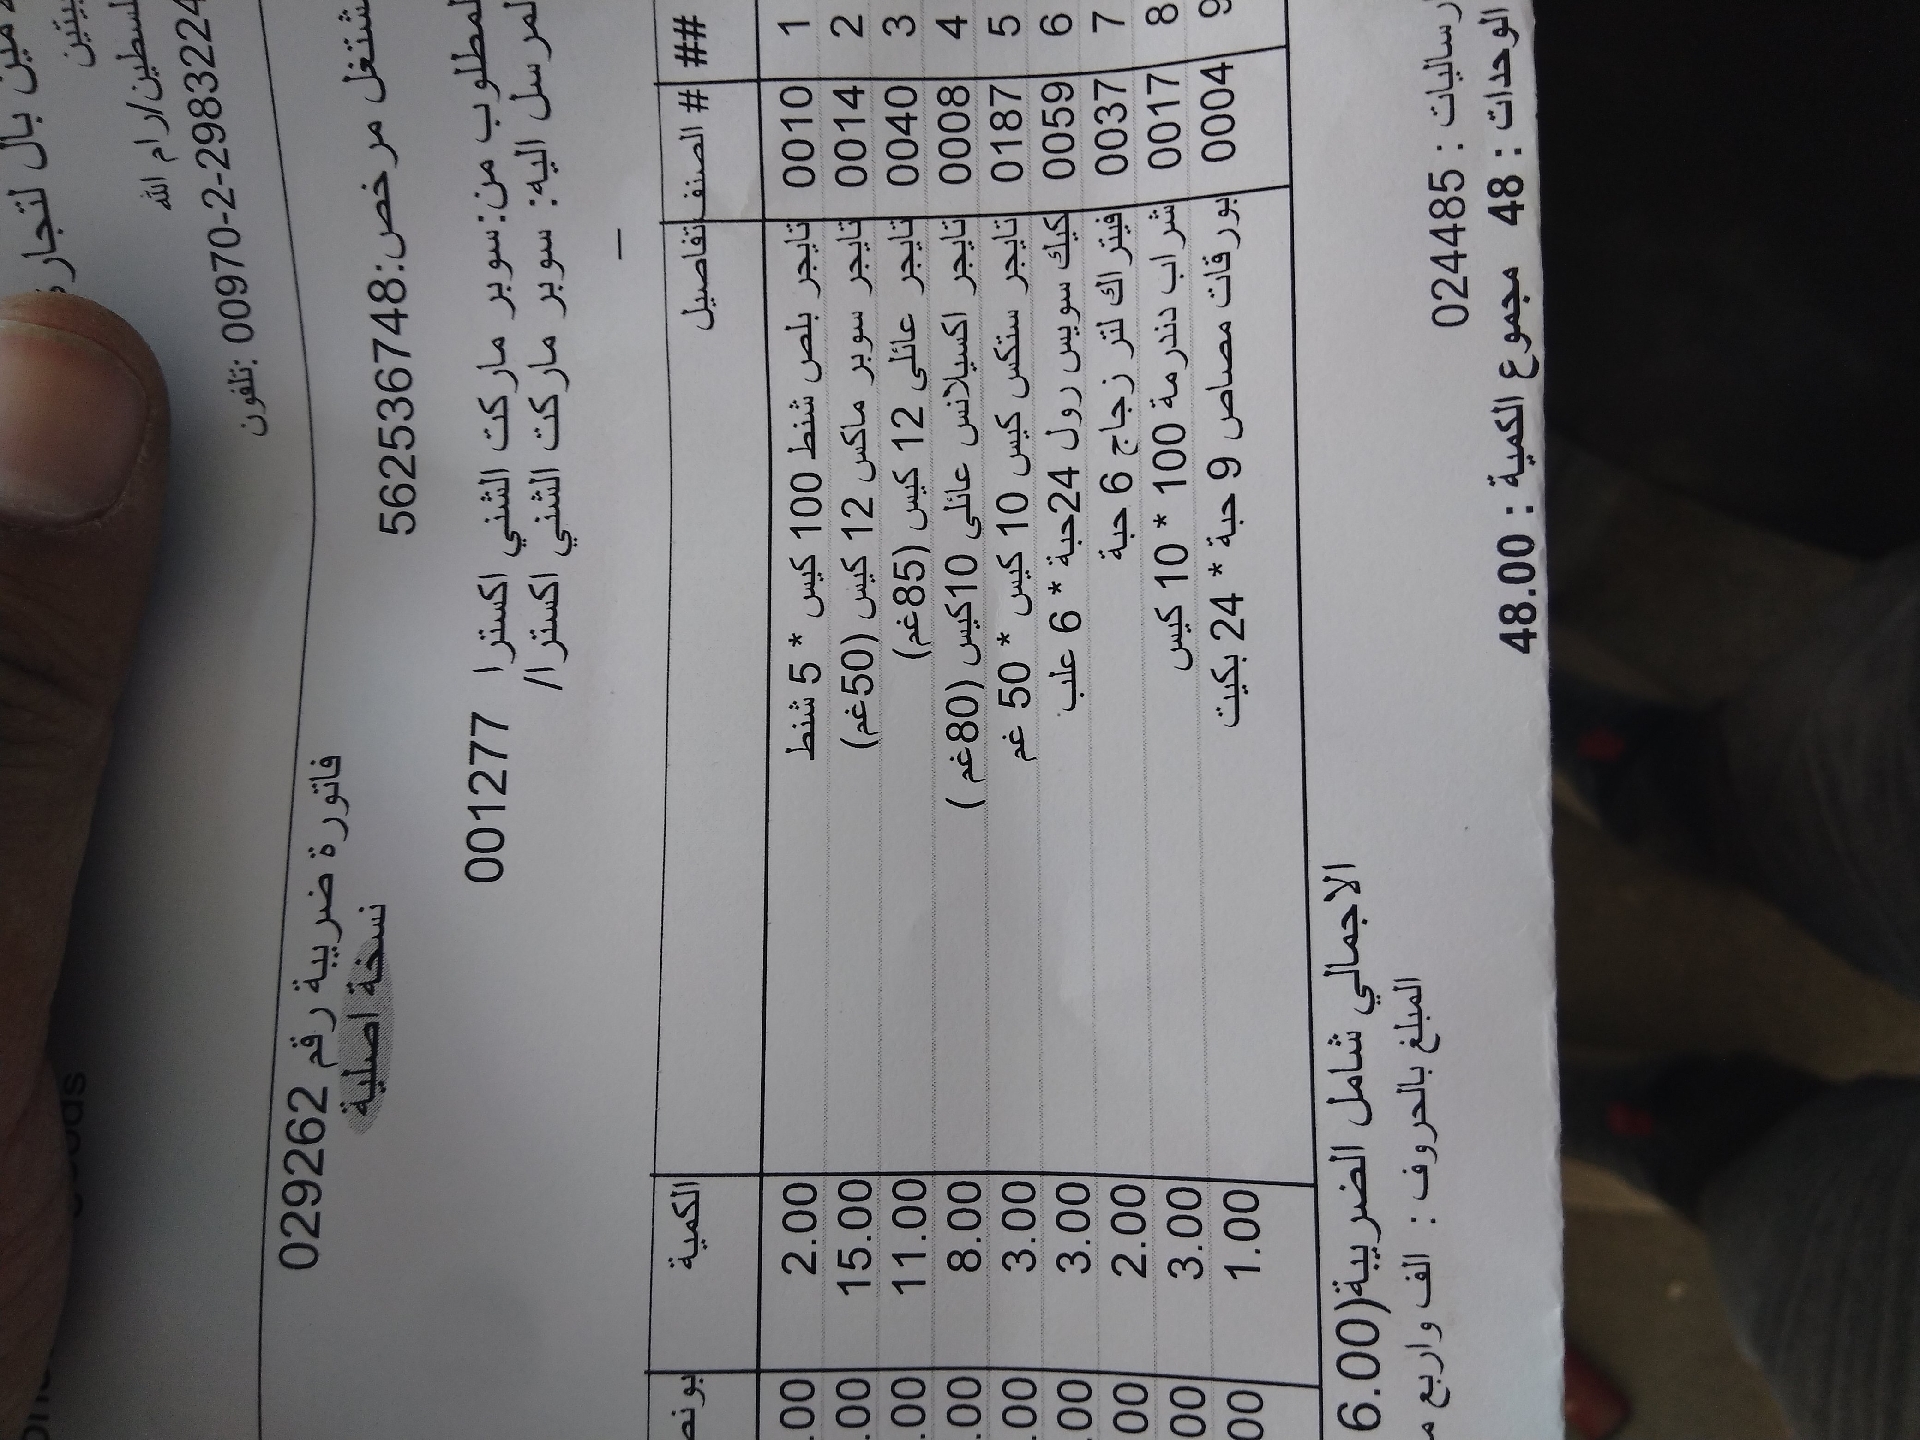 بال لتجار
رام الله
تلفون: 00970-2-2983224
مشتغل مرخص:562536748
فاتورة ضريبية رقم 029262
نسخة اصلية
المطلوب من:سوبر ماركت الشني اكسترا 001277
المرسل اليه: سوبر ماركت الشني اكسترا/
## # الصنف تفاصيل الكمية بونص
1 0010 تايجر بلص شنط 100 كيس * 5 شنط 2.00 .00
2 0014 تايجر سوبر ماكس 12 كيس (50غم) 15.00 .00
3 0040 تايجر عائلي 12 كيس (85غم) 11.00 .00
4 0008 تايجر اكسيلانس عائلي 10كيس (80غم ) 8.00 .00
5 0187 تايجر ستكس كيس 10 كيس * 50 غم 3.00 .00
6 0059 كيك سويس رول 24حبة * 6 علب 3.00 .00
7 0037 فيتراك لتر زجاج 6 حبة 2.00 00
8 0017 شراب دندرمة 100 * 10 كيس 3.00 00
9 0004 بورقات مصاص 9 حبة * 24 بكيت 1.00 00
الاجمالي شامل الضريبة(6.00
المبلغ بالحروف : الف واربع
رساليات : 024485
الوحدات : 48 مجموع الكمية : 48.00